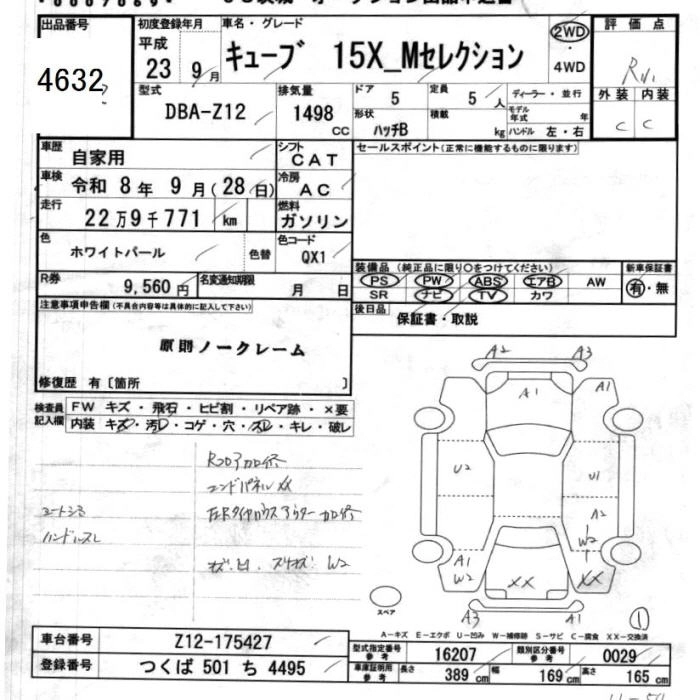 出品番号
4632
初度登録年月
平成
23 9月
車名・グレード
キューブ 15X_Mセレクション
2WD
4WD
評価点
外装 内装
C C
型式
DBA-Z12
排気量
1498 CC
ドア 5
定員 5 人
形状 ハッチB
積載 kg
ディーラー・並行
モデル年式 年
ハンドル 左・右
車歴 自家用
シフト CAT
セールスポイント(正常に機能するものに限ります)
車検 令和 8年 9月(28日)
冷房 AC
走行 22万9千771 km
燃料 ガソリン
色 ホワイトパール 色替
色コード QX1
装備品 (純正品に限り○をつけてください)
PS PW ABS エアB AW
SR ナビ TV カワ
新車保証書
有・無
R券 9,560円
名変通知期限 月 日
後日品 保証書・取説
注意事項申告欄(不具合内容等は具体的に記入して下さい)
原則ノークレーム
修復歴 有〔箇所 〕
検査員記入欄
FW キズ・飛石・ヒビ割・リペア跡・×要
内装 キズ・汚レ・コゲ・穴・スレ・キレ・破レ
エンドパネルXX
ハンドルスレ
W2
A2 A3
A1 A1
U2 U1
A2
W2
A1
W2 XX XX
A3 A1
スペア
1
A−キズ E−エクボ U−凹み W−補修跡 S−サビ C−腐食 XX−交換済
車台番号 Z12-175427
登録番号 つくば 501 ち 4495
型式指定番号 参考 16207
類別区分番号 参考 0029
車庫証明用 参考 長さ 389 cm 幅 169 cm 高さ 165 cm